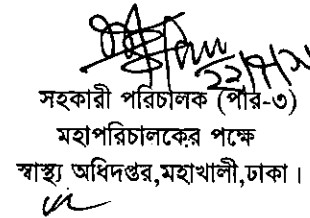 সহকারী পরিচালক (পার-৩)
মহাপরিচালকের পক্ষে
স্বাস্থ্য অধিদপ্তর,মহাখালী,ঢাকা।